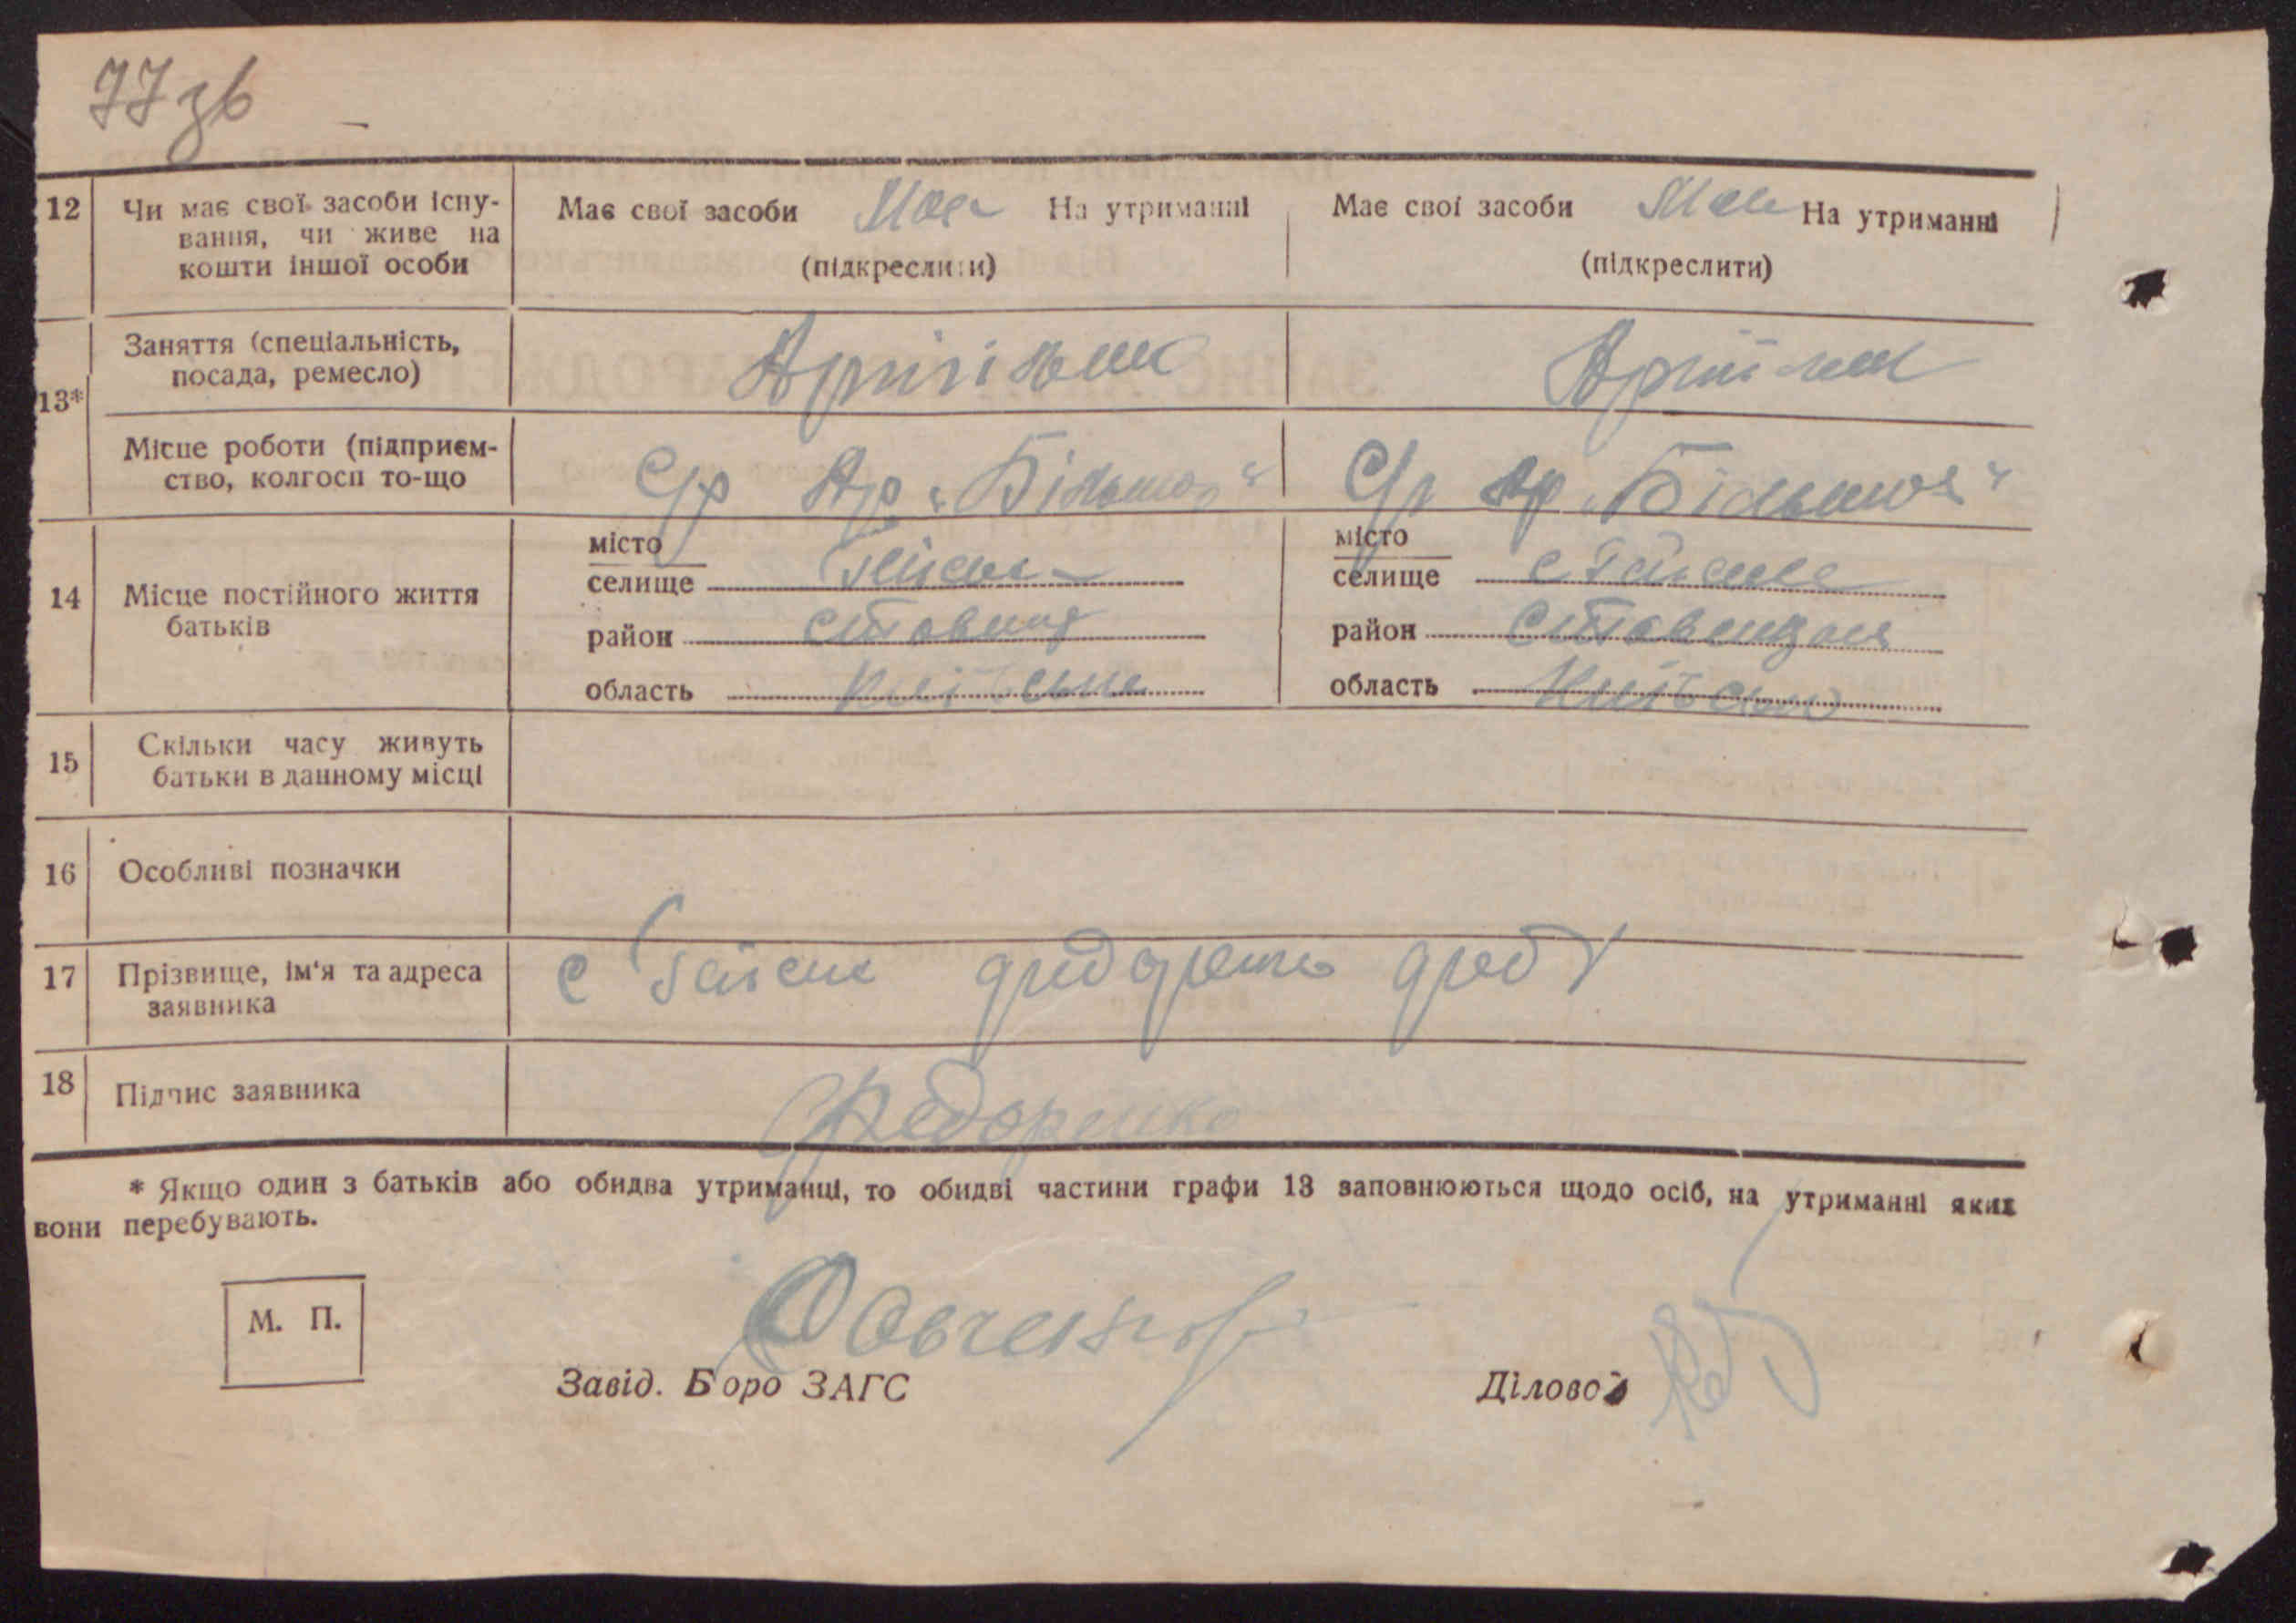 77 зв
12 Чи має свої засоби існу- Має свої засоби Має На утриманні Має свої засоби Має На утриманні
вання, чи живе на
кошти іншої особи (підкреслити) (підкреслити)
Заняття (спеціальність,
посада, ремесло)
13*
Місце роботи (підприєм-
ство, колгосп то-що с/г Ар. „Більшов“ с/г ар „Більшов“
місто місто
селище Гейсиха селище с Гейсиха
14 Місце постійного життя
батьків район Ставище район Ставищан
область Київська область Київсько
15 Скільки часу живуть
батьки в данному місці
16 Особливі позначки
17 Прізвище, ім'я та адреса
заявника с
18 Підпис заявника Федоренко
* Якщо один з батьків або обидва утриманці, то обидві частини графи 13 заповнюються щодо осіб, на утриманні яких
вони перебувають.
М. П.
Завід. Бюро ЗАГС Діловод